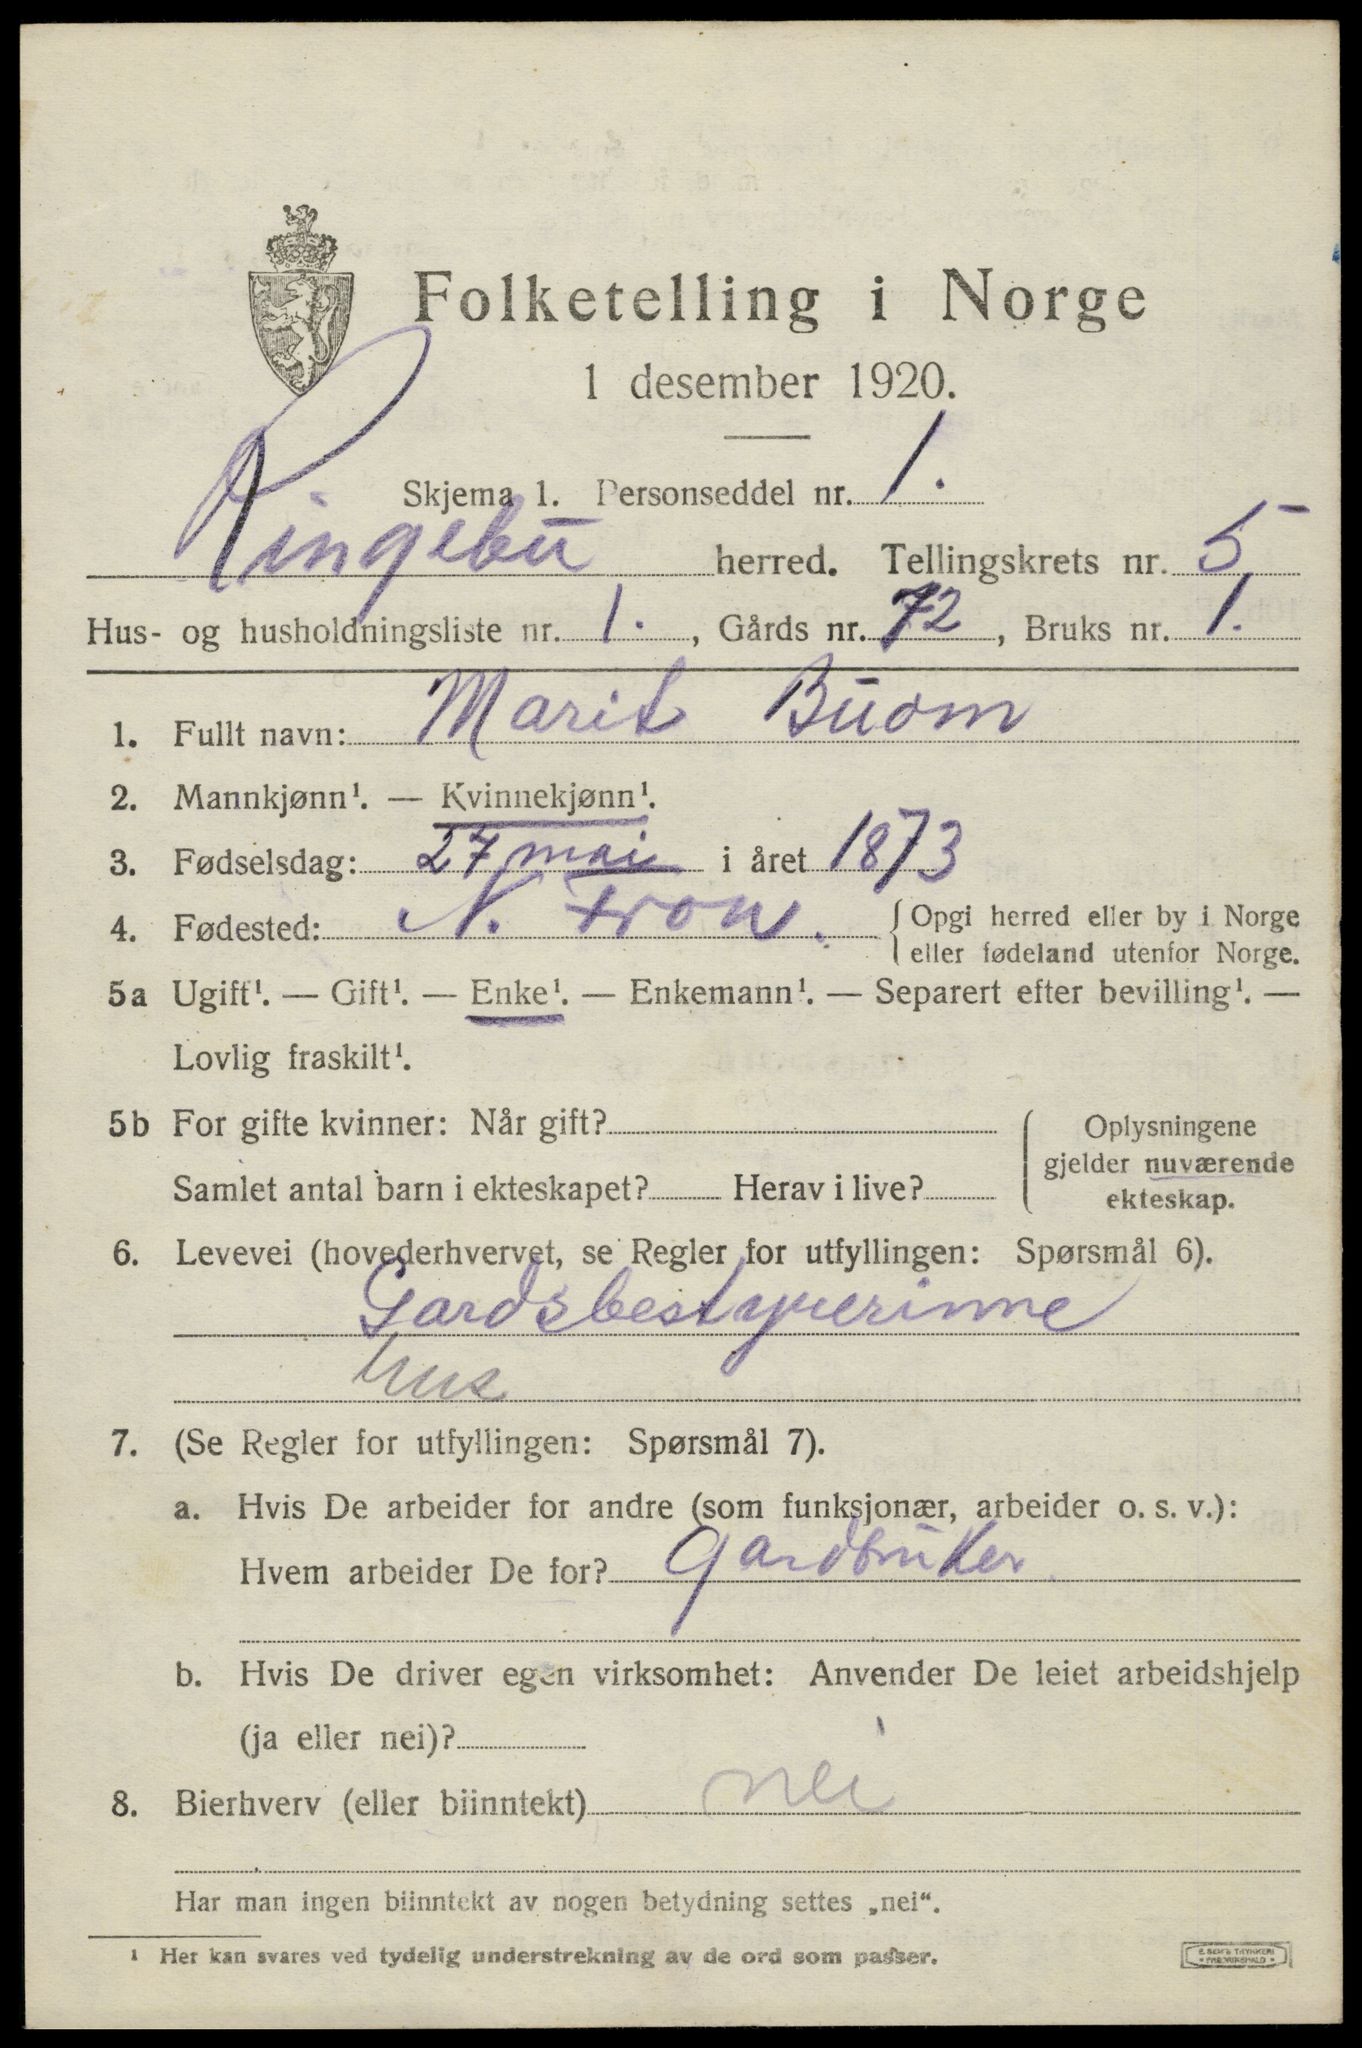 Folketelling i Norge
1 desember 1920.
Skjema 1. Personseddel nr. 1.
Ringebu herred. Tellingskrets nr. 5
Hus- og husholdningsliste nr. 1. , Gårds nr. 72 , Bruks nr. 1.
1. Fullt navn: Marit Buom
2. Mannkjønn¹. — Kvinnekjønn¹.
3. Fødselsdag: 27 mai i året 1873
4. Fødested: N. Fron. { Opgi herred eller by i Norge
eller fødeland utenfor Norge.
5a Ugift¹. — Gift¹. — Enke¹. — Enkemann¹. — Separert efter bevilling¹. —
Lovlig fraskilt¹.
5b For gifte kvinner: Når gift? Oplysningene
gjelder nuværende
Samlet antal barn i ekteskapet? Herav i live? ekteskap.
6. Levevei (hovederhvervet, se Regler for utfyllingen: Spørsmål 6).
Gardsbestyrerinne
hus
7. (Se Regler for utfyllingen: Spørsmål 7).
a. Hvis De arbeider for andre (som funksjonær, arbeider o. s. v.):
Hvem arbeider De for? gardbruker.
b. Hvis De driver egen virksomhet: Anvender De leiet arbeidshjelp
(ja eller nei)?
8. Bierhverv (eller biinntekt) nei
Har man ingen biinntekt av nogen betydning settes „nei“.
¹ Her kan svares ved tydelig understrekning av de ord som passer.